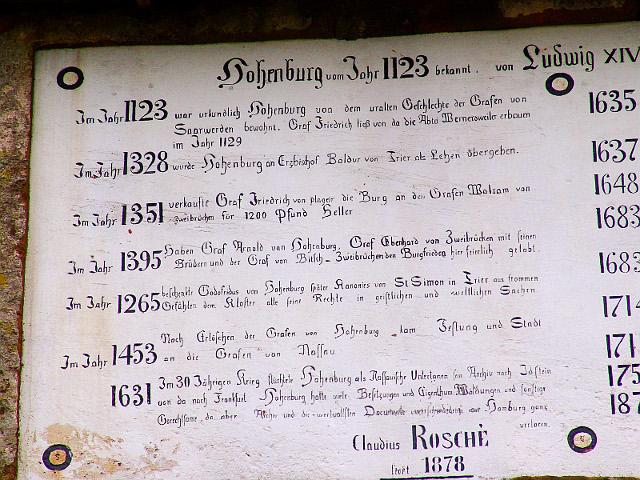 Hohenburg vom Jahr 1123 bekannt. von Ludwig XIV
Im Jahr 1123 war urkundlich Hohenburg von dem uralten Geschlechte der Grafen von
Saarwerden bewohnt. Graf Friedrich ließ von da die Abta Wernersweiler erbauen
im Jahr 1129
Im Jahr 1328 wurde Hohenburg an Erzbischof Baldur von Trier als Lehen übergeben.
Im Jahr 1351 verkaufte Graf Friedrich von die Burg an den Grafen Walsam von
Zweibrücken für 1200 Pfund Heller
Im Jahr 1395 Haben Graf Arnold von Hohenburg, Graf Eberhard von Zweibrücken mit seinen
Brüdern und der Graf von Bitsch-Zweibrücken den Burgfrieden hier feierlich gelobt.
Im Jahr 1265 beschenkte Godofridus von Hohenburg später Kanonies von St Simon in Trier aus frommen
Gefühlen dem Kloster alle seine Rechte in geistlichen und weltlichen Sachen
Im Jahr 1453 Nach Erlöschen der Grafen von Hohenburg kam Festung und Stadt
an die Grafen von Nassau.
1631 Im 30 Jährigen Krieg flüchtete Hohenburg als Nassauische Untertanen sein Archiv nach Idstein
von da nach Frankfurt. Hohenburg hatte viele Besitzungen und Eigenthum Waldungen und sonstige
da aber Archiv und die wertvollsten Documente aus Homburg ganz
verloren.
Claudius ROSCHÈ
1878
1635
1637
1648
1683
1683
1714
171
175
187